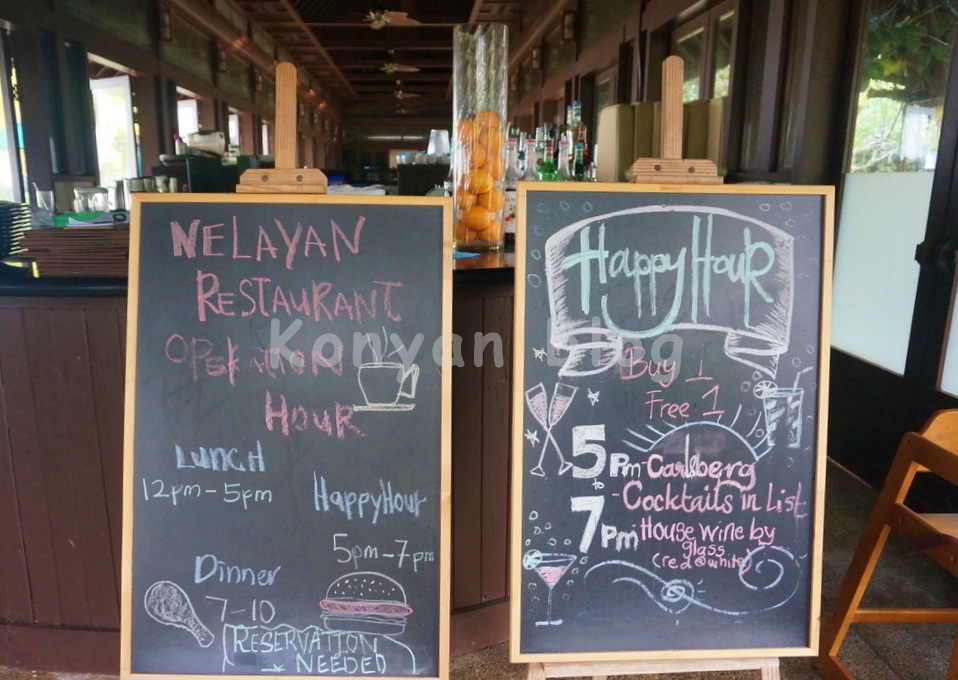 NELAYAN
RESTAURANT
OPERATION
HOUR
LUNCH
12pm-5pm
HappyHour
5pm-7pm
Dinner
7-10
RESERVATION
NEEDED
Happy Hour
Buy 1
Free 1
5pm
to
7pm
-Carlsberg
-Cocktails in List
-House wine by
glass
(red @ white)
Konyan blog